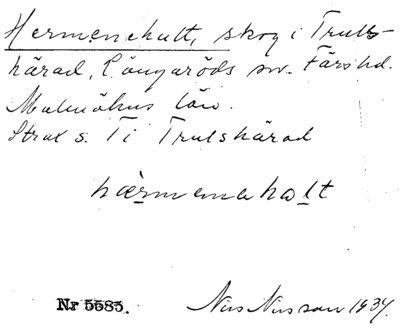 Hermenehult, skog i Truls-
härad, Långaröds sn. Färs hd.
Malmöhus län.
Strax s. Ti Trulshärad
hærmenaholt
Nr 5585. Nils Nilsson 1934.